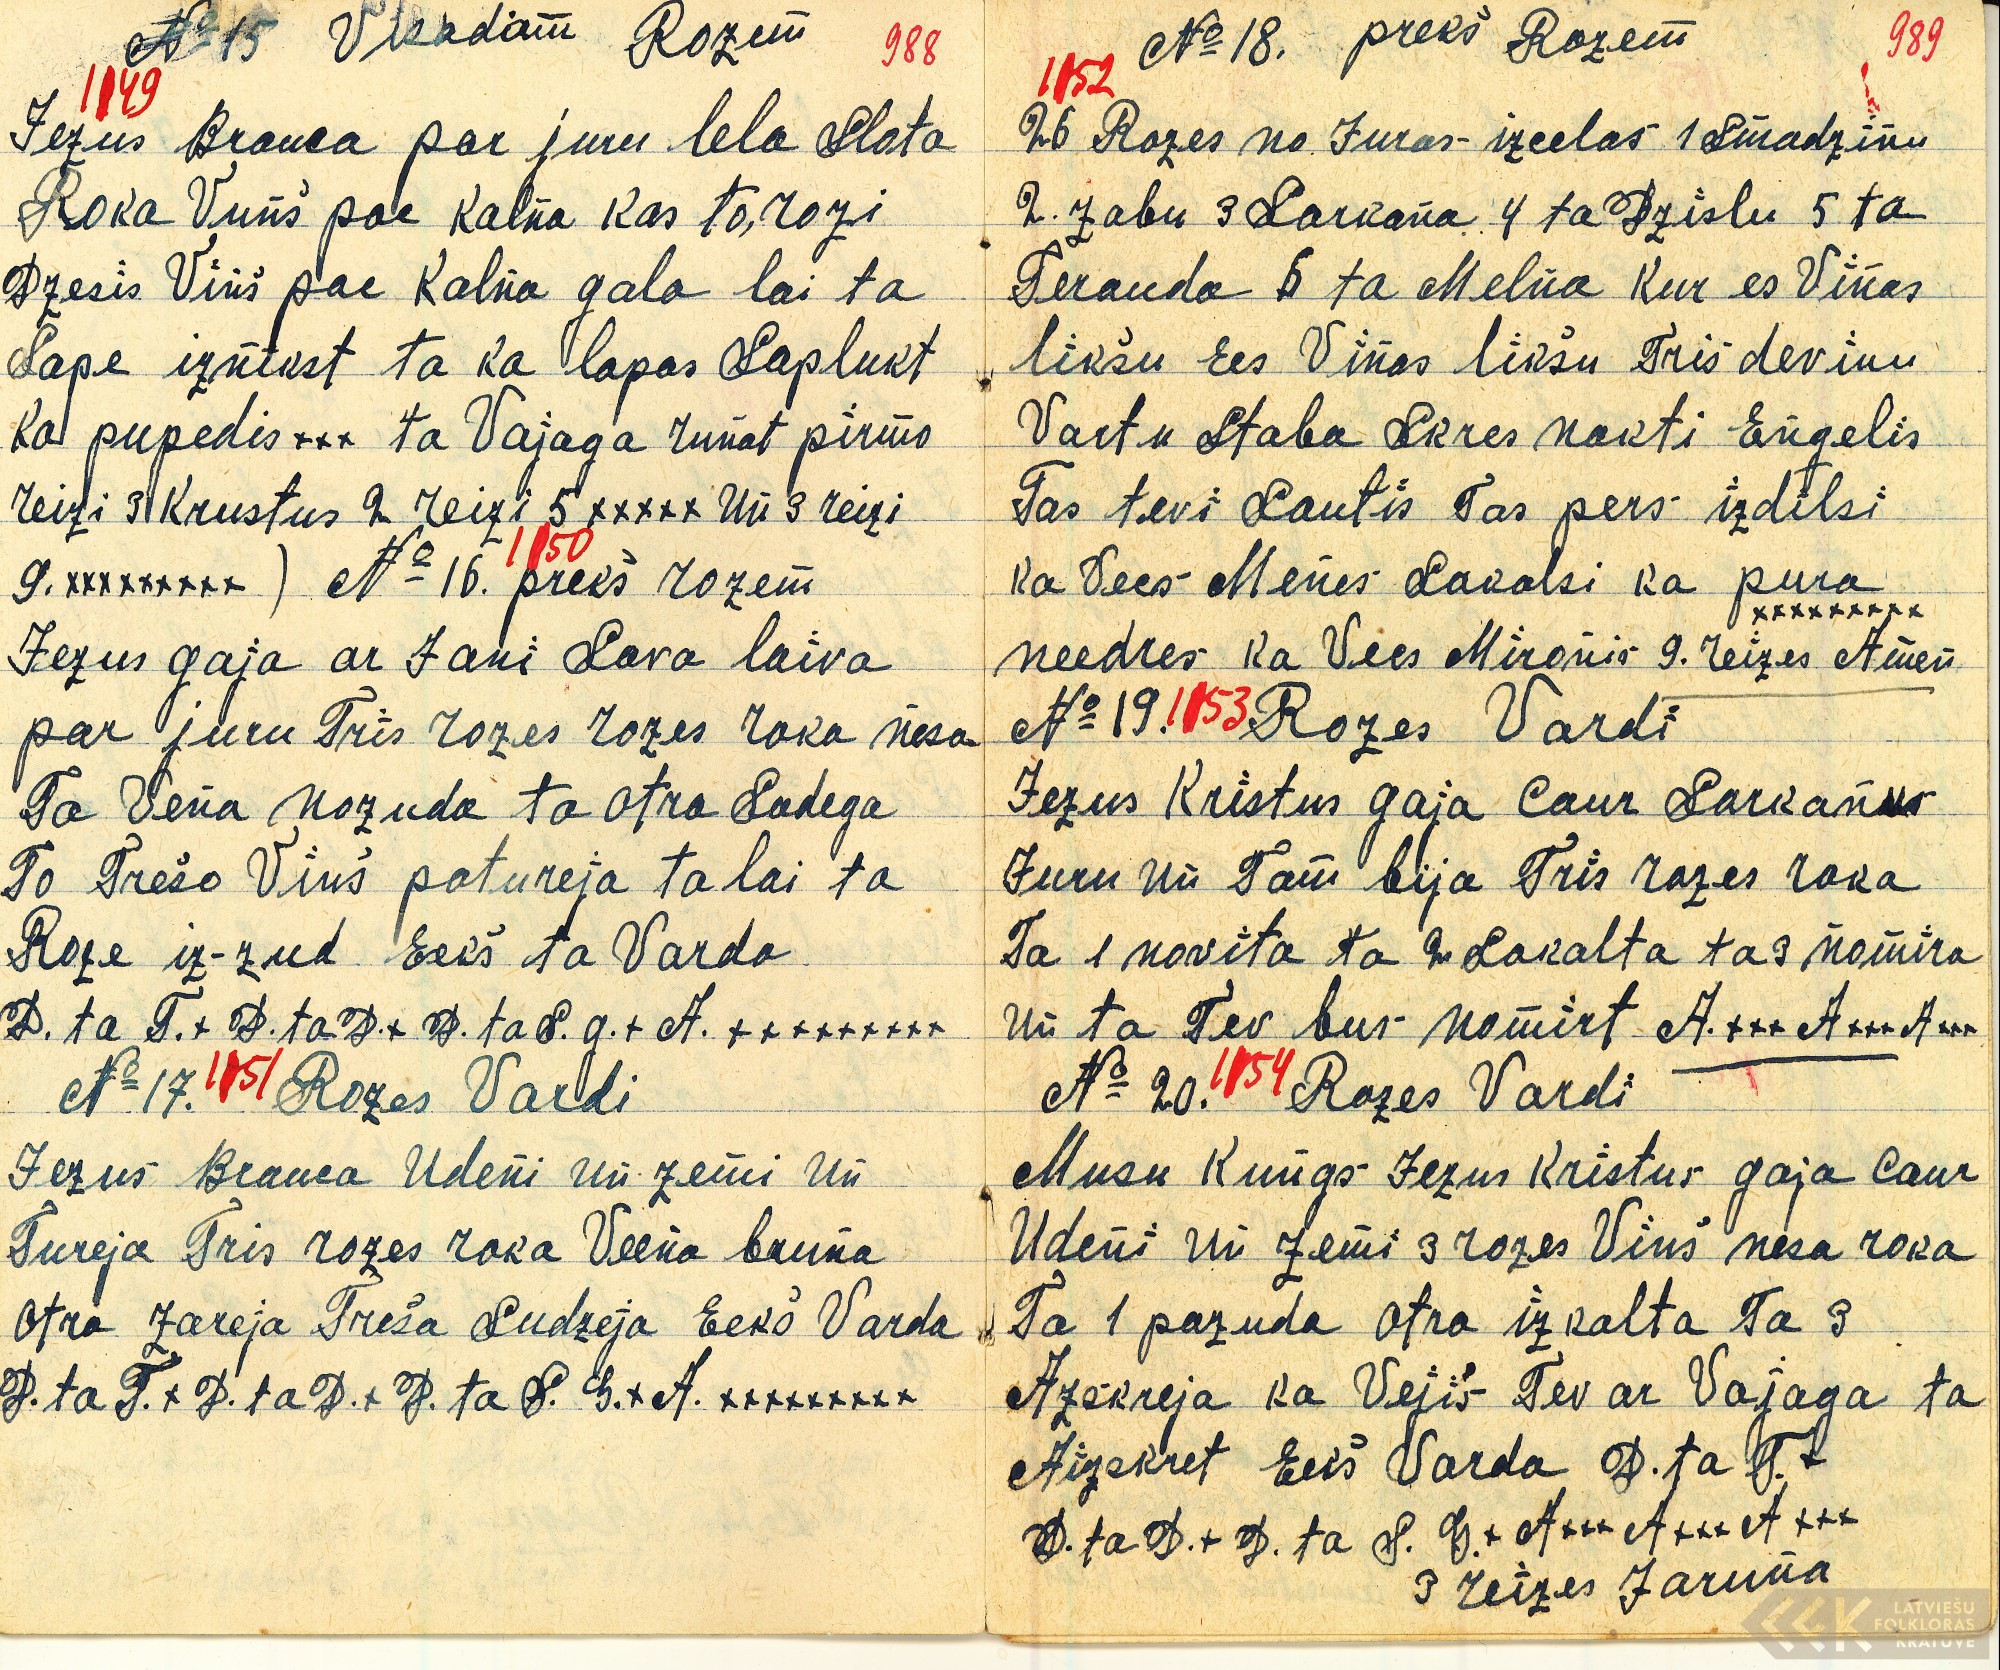 № 15 Visadiam̃ Rozem̃ 988
1149
Jezus Brauca par juru lela Slota
Roka Vuñš pac Kalña Kas to, rozi
Dzesis Viñš pac Kalña gala lai ta
Sape izñikst ta ka lapas Saplukt
Ka pupedis××× ta Vajaga ruñat pirm̃o
reizi 3 Krustus 2 reizi 5 ××××× Uñ 3 reizi
9. ××××××××× ) № 16. 1150 prekš rozem̃
Jezus gaja ar Jani Sava laiva
par juru Tris rozes rozes roka ñesa
Ta Veña nozuda ta otra Sadega
To Trešo Viñš patureja ta lai ta
Roze iz-zud Eekš ta Varda
D. ta T.+ D. ta D.+ D. ta S. g.+ A. ×××××××××
№ 17. 1151 Rozes Vardi
Jezus Brauca Udeñi uñ zem̃i uñ
Tureja Tris rozes roka Veeña bruña
otra zareja Treša Sudzeja Eekš Varda
D. ta T.+ D. ta D.+ D. ta S. G.+ A. ×××××××××
№ 18. prekš Rozem̃ 989
1152
26 Rozes no Juras izcelas 1 Sm̃adziñu
2. zabu 3 Sarkaña 4 ta Dzislu 5 ta
Terauda 6 ta Melña Kur es Viñas
likšu Ees Viñas likšu Tris deviñu
Vartu Staba Skres nakti Eñgelis
Tas tevi Sautis Tas pers izdilsi
ka Vecs Meñes Sakalsi ka pura
×××××××××
needres ka Vecs Miroñis 9. reizes Am̃eñ
№ 19. 1153 Rozes Vardi
Jezus Kristus gaja Caur Sarkañus
Juru uñ Tam̃ bija Tris rozes roka
Ta 1 novita ta 2 Sakalta ta 3 ñom̃ira
uñ ta Tev bus nom̃irt A. ××× A ××× A ×××
№ 20. 1154 Rozes Vardi
Musu Kuñgs Jezus Kristus gaja Caur
Udeñi uñ zem̃i 3 rozes Viñš nesa roka
Ta 1 pazuda otra izkalta Ta 3
Azskreja ka Vejiš Tev ar Vajaga ta
Aizskret Eekš Varda D. ta T.+
D. ta D.+ D. ta S. G.+ A××× A××× A ×××
3 reizes Jaruña
LATVIEŠU
FOLKLORAS
KRĀTUVE